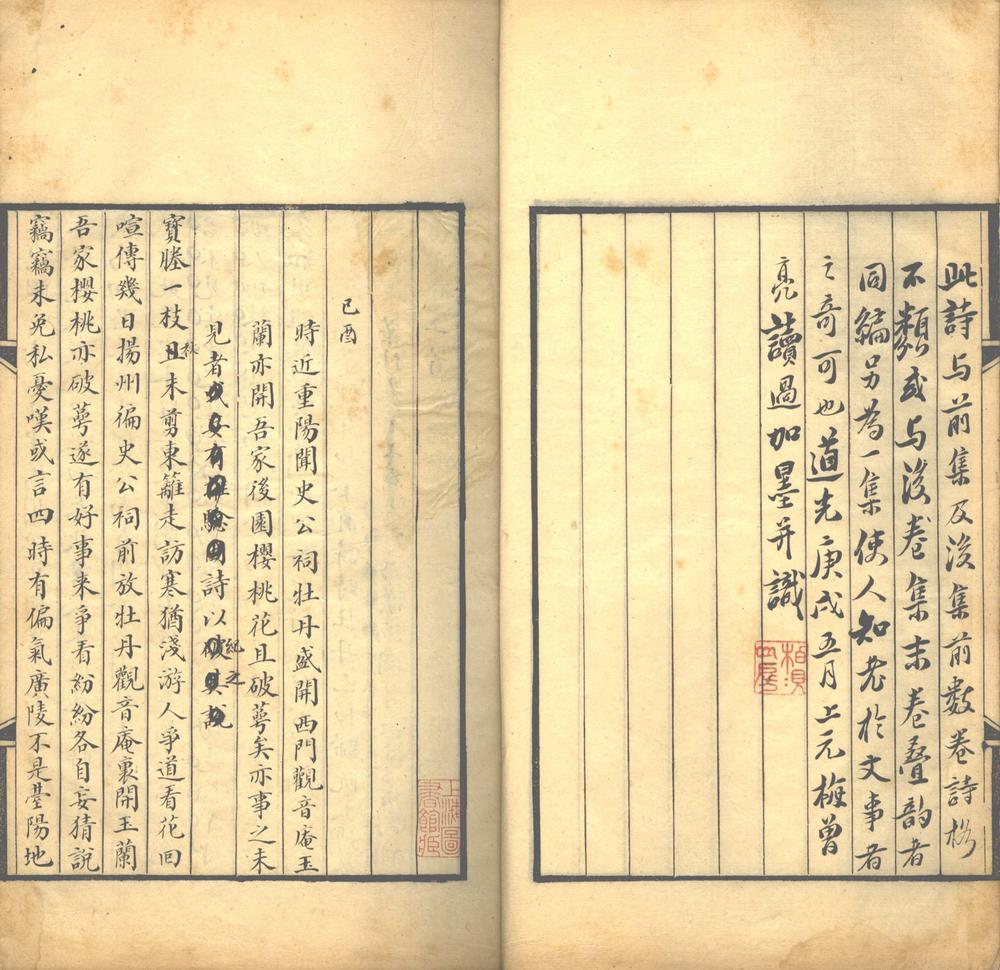 此詩与前集及後集前數卷詩格
不類或与後卷集末卷疊韵者
同編另為一集使人知老於文事者
之奇可也道光庚戌五月上元梅曾
亮讀過加墨并識
己酉
時近重陽聞史公祠牡丹盛開西門觀音庵玉
蘭亦開吾家後園櫻桃花且破萼矣亦事之未
見者
詩以紀之
寶塍一枝秋未剪東籬走訪寒猶淺游人爭道看花回
喧傳幾日揚州徧史公祠前放牡丹觀音庵裏開玉蘭
吾家櫻桃亦破萼遂有好事来爭看紛紛各自妄猜說
竊竊未免私憂嘆或言四時有偏氣廣陵不是臺陽地
上海圖書館藏